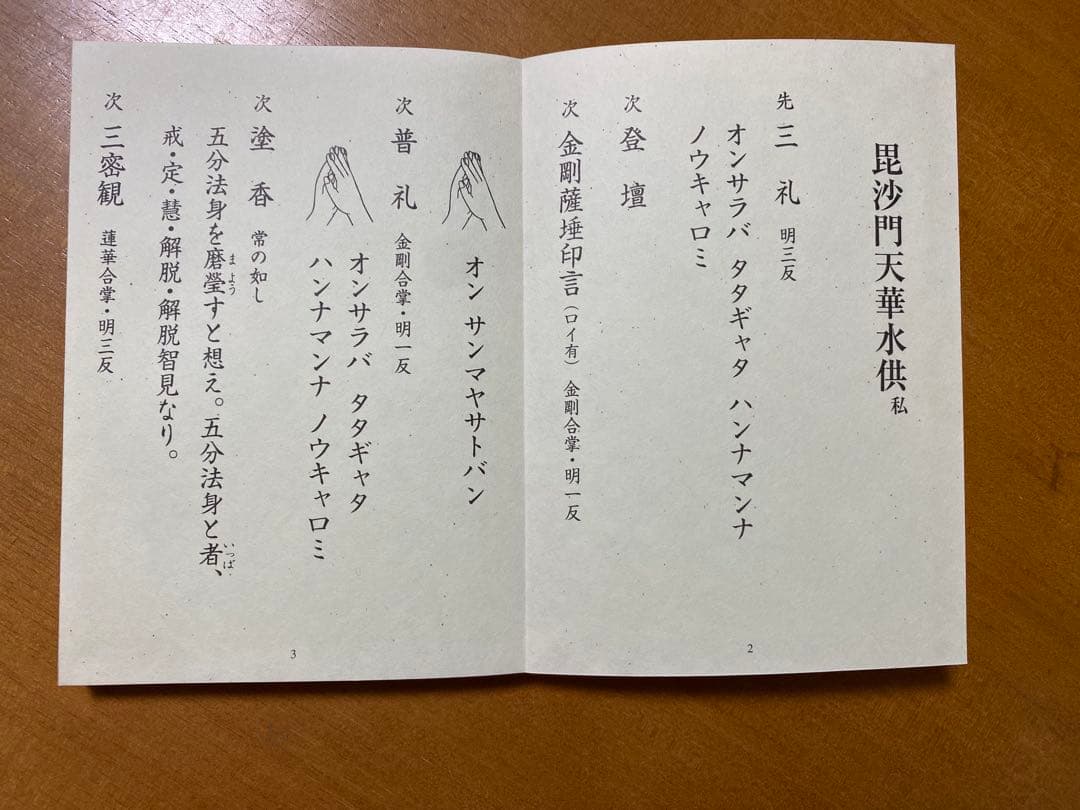 毘沙門天華水供 私
先 三礼 明三反
オンサラバ タタギャタ ハンナマンナ
ノウキャロミ
次 登壇
次 金剛薩埵印言(ロイ有) 金剛合掌・明一反
2
オン サンマヤサトバン
次 普礼 金剛合掌・明一反
オンサラバ タタギャタ
ハンナマンナ ノウキャロミ
次 塗香 常の如し
五分法身を磨瑩すと想え。五分法身と者、
まよう
いっぱ
戒・定・慧・解脱・解脱智見なり。
次 三密観 蓮華合掌・明三反
3